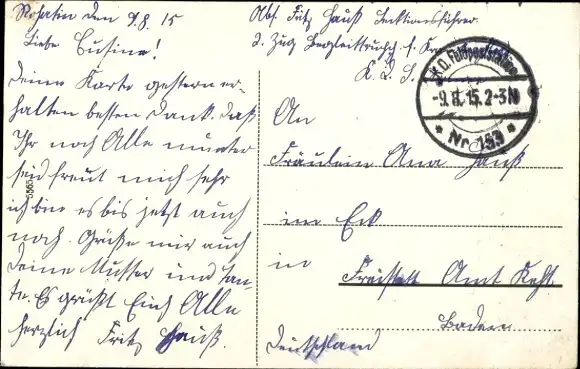 Rohatin den 9.8.15
Liebe Cusine!
Deine Karte gestern er-
halten besten Dank. Daß
Ihr noch Alle munter
seid freut mich sehr
ich bin es bis jetzt auch
noch. Grüße mir auch
Deine Mutter und Tan-
te. Es grüßt Euch Alle
herzlich Fritz Hauß.
Abs. Fritz Hauß Sektionsführer.
2. Zug
K. D. Feldpoststation
-9.8.15. 2-3N
* Nr. 153 *
An
Fräulein Ana Hauß
im Eck
in
Freistett Amt Kehl
Baden
Deutschland